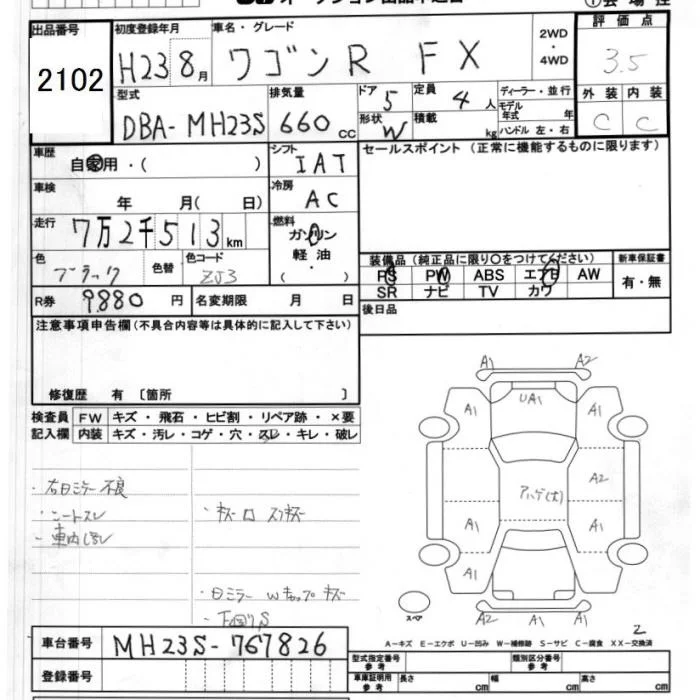 出品番号 初度登録年月 車名・グレード 評価点
2102 H23 8月 ワゴンR FX 2WD・4WD 3.5
型式 排気量 ドア 定員 ディーラー・並行 外装 内装
DBA-MH23S 660cc 5 4人 モデル年式 年 C C
形状 W 積載 kg ハンドル 左・右
車歴 自家用・( ) シフト IAT セールスポイント (正常に機能するものに限ります)
車検 年 月( 日) 冷房 AC
走行 7万2千513km 燃料 ガソリン
軽油・( )
色 ブラック 色替 色コード ZJ3
装備品(純正品に限り○をつけてください) 新車保証書
PS PW ABS エアB AW 有・無
SR ナビ TV カワ
R券 9880円 名変期限 月 日 後日品
注意事項申告欄(不具合内容等は具体的に記入して下さい)
修復歴 有 〔箇所 〕
検査員 FW キズ・飛石・ヒビ割・リペア跡・×要
記入欄 内装 キズ・汚レ・コゲ・穴・スレ・キレ・破レ
・右ミラー不良
・シートスレ
・車内
・キズ
・ミラー W キャップ キズ
・下回りS
A1 A2
A1 UA1 A1
アハゲ(大) A2
A1 A1
A1
A2 A1 A1
スペア
2
A-キズ E-エクボ U-凹み W-補修跡 S-サビ C-腐食 XX-交換済
車台番号 MH23S-767826
型式指定番号 参考 類別区分番号 参考
登録番号
車庫証明用 参考 長さ cm 幅 cm 高さ cm